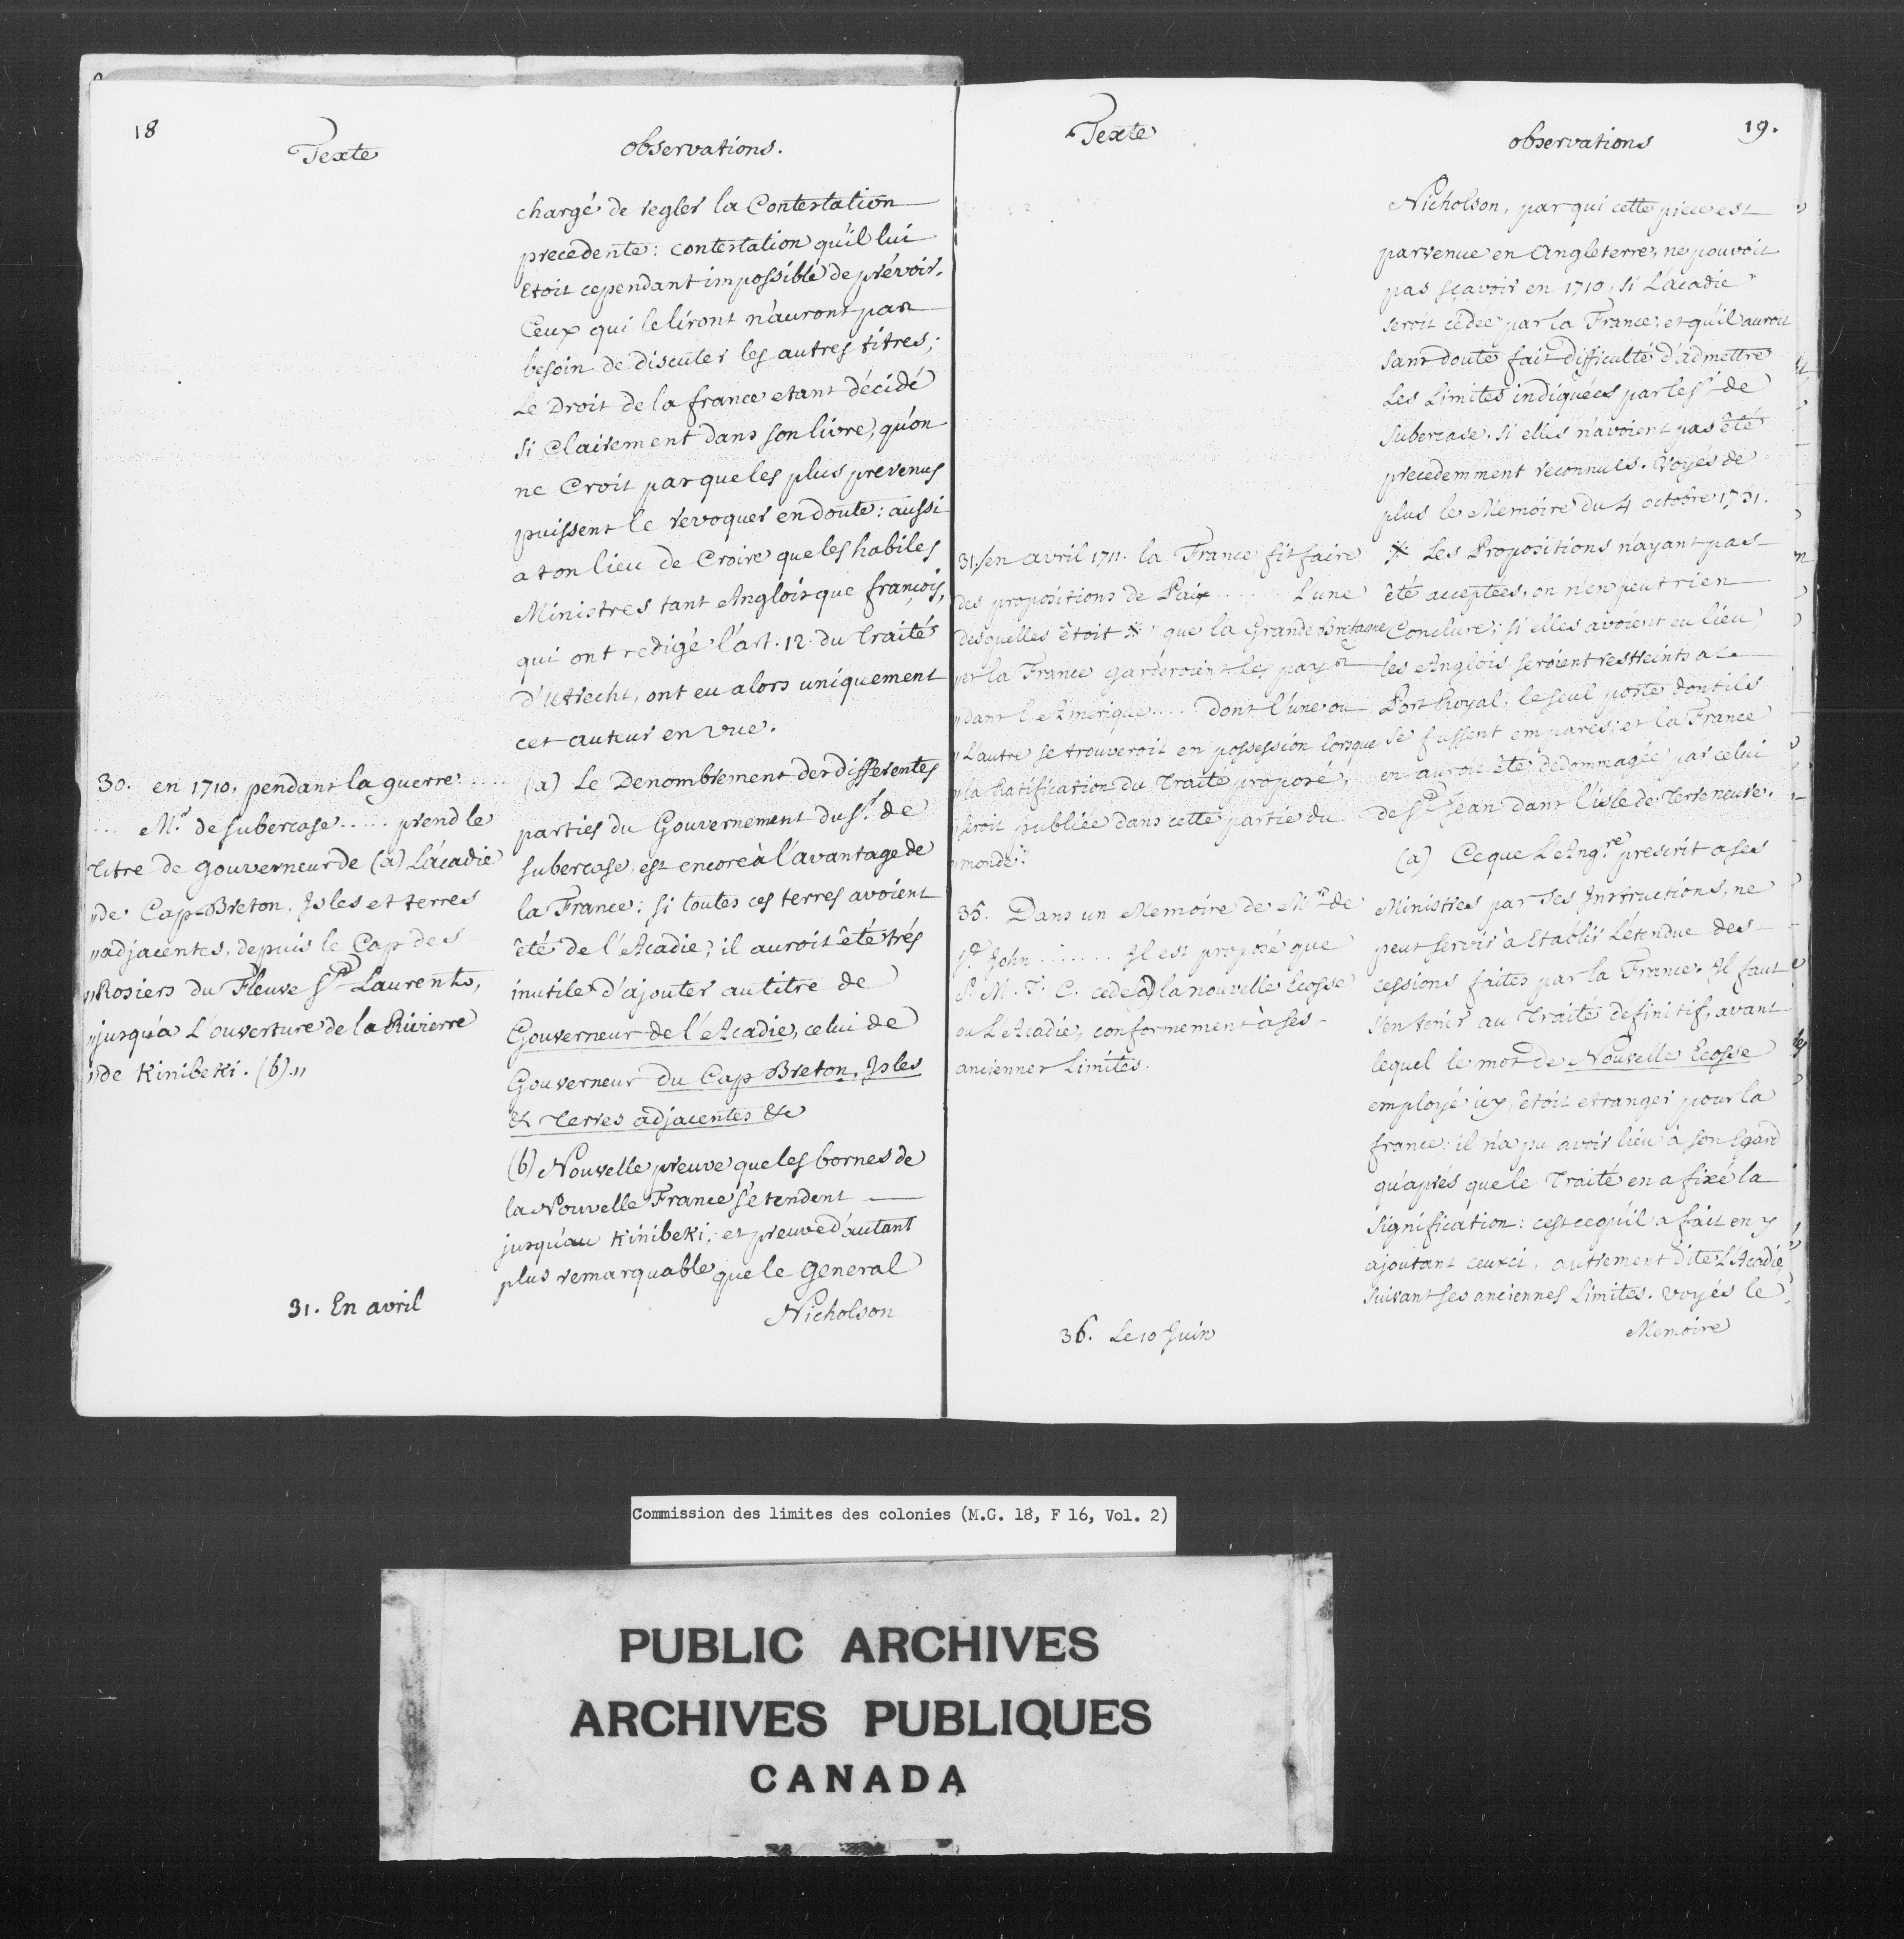 18
Texte
observations.
chargé de regler la Contestation
precedente: contestation qu'il lui
etoit cependant impossible de prévoir.
Ceux qui le liront n'auront pas
besoin de discuter les autres titres;
Le Droit de la france etant décidé
si Clairement dans son livre, qu'on
ne Croit pas que les plus prevenus
puissent le revoquer en doute: aussi
a t on lieu de Croire que les habiles
Ministres tant Anglois que françois,
qui ont redigé l'art. 12. du Traité
d'Utrecht, ont eu alors uniquement
cet auteur en vue.
30. en 1710, pendant la guerre .....
... Mr. de Subercase ..... prend le
Titre de gouverneur de (a) L'acadie
"de Cap-Breton, Isles et terres
"adjacentes, depuis le Cap des
"Rosiers du Fleuve St Laurents,
"jusqu'a L'ouverture de la Rivierre
"de Kinibeki. (b)."
(a) Le Denombrement des differentes
parties du Gouvernement du Sr. de
Subercase, est encore à l'avantage de
la France: si toutes ces terres avoient
été de l'Acadie, il auroit été trés
inutile d'ajouter au titre de
Gouverneur de l'Acadie, celui de
Gouverneur du Cap Breton, Isles
& Terres adjacentes &c
(b) Nouvelle preuve que les bornes de
la Nouvelle France s'étendent
jusqu'au Kinibeki; et preuve d'autant
plus remarquable que le General
31. En avril
Nicholson
Texte
observations
19.
Nicholson, par qui cette piece est
parvenue en Angleterre, ne pouvoit
pas sçavoir en 1710, si L'acadie
seroit cedée par la France; et qu'il auroit
sans doute fait difficulté d'admettre
Les Limites indiquées par le Sr. de
Subercase, si elles n'avoient pas été
precedemment reconnues. Voyés de
plus le Memoire du 4 octobre 1751.
31. en avril 1711. la France fit faire
des propositions de Paix ....... L'une
desquelles étoit * " que la Grande Bretagne
"et la France garderoient les pays
"dans l'Amerique .... dont l'une ou
"L'autre se trouveroit en possession lorsque
"la Ratification du Traité proposé,
"seroit publiée dans cette partie du
"monde."
* Les Propositions n'ayant pas
été acceptées, on n'en peut rien
Conclure; si elles avoient eu lieu
les Anglois seroient restreints a
Port Royal, le seul poste dont ils
se fussent emparés; et la France
en auroit été dedommagée par celui
de St Jean dans l'isle de Terre neuve.
35. Dans un Memoire de Mr de
St John ....... Il est proposé que
S. M. T. C. cede (a) la nouvelle Ecosse
ou L'Acadie, conformement à ses
anciennes Limites.
(a) Ce que L'Angre prescrit a ses
Ministres par ses Instructions, ne
peut servir à Etablir L'étendue des
cessions faites par la France. Il faut
s'en tenir au Traité définitif, avant
lequel le mot de Nouvelle Ecosse
employé icy, étoit etranger pour la
france: il n'a pu avoir lieu à son Egard
qu'aprés que le Traité en a fixé la
signification: c'est ce qu'il a fait en y
ajoutant ceux ci, autrement dite L'Acadie,
suivant ses anciennes Limites. voyés le
36. Le 10 Juin
Memoire
Commission des limites des colonies (M.G. 18, F 16, Vol. 2)
PUBLIC ARCHIVES
ARCHIVES PUBLIQUES
CANADA